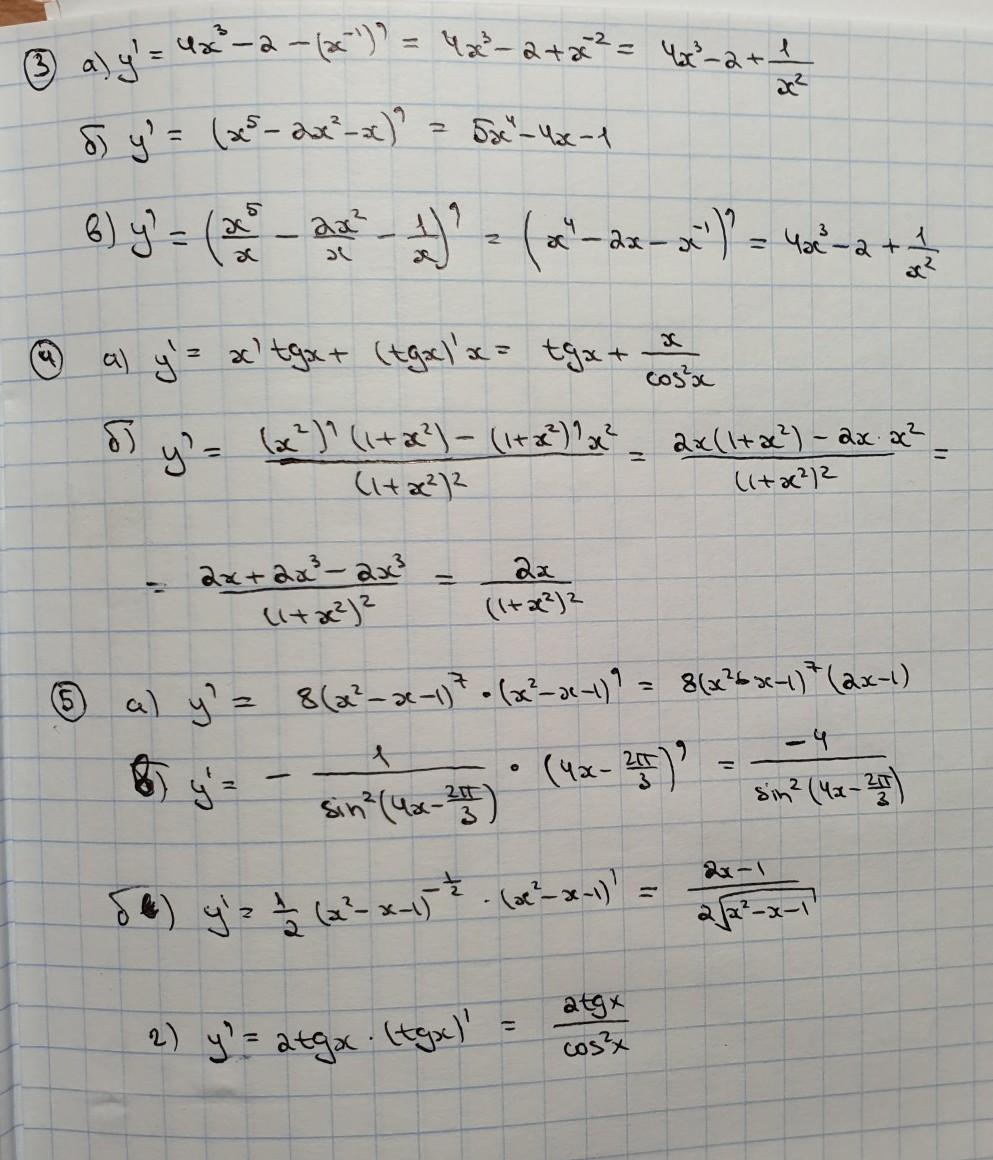 ③ а) y' = 4x³ − 2 − (x⁻¹)' = 4x³ − 2 + x⁻² = 4x³ − 2 + 1/x²
б) y' = (x⁵ − 2x² − x)' = 5x⁴ − 4x − 1
в) y' = (x⁵/x − 2x²/x − 1/x)' = (x⁴ − 2x − x⁻¹)' = 4x³ − 2 + 1/x²
④ а) y' = x' tgx + (tgx)' x = tgx + x/cos²x
б) y' = ((x²)' (1+x²) − (1+x²)' x²)/(1+x²)² = (2x(1+x²) − 2x · x²)/(1+x²)² =
= (2x + 2x³ − 2x³)/(1+x²)² = 2x/(1+x²)²
⑤ а) y' = 8(x² − x − 1)⁷ · (x² − x − 1)' = 8(x² − x − 1)⁷ (2x − 1)
в) y' = − 1/sin²(4x − 2π/3) · (4x − 2π/3)' = −4/sin²(4x − 2π/3)
б) y' = 1/2 (x² − x − 1)^(−1/2) · (x² − x − 1)' = (2x − 1)/(2√(x² − x − 1))
г) y' = 2tgx · (tgx)' = 2tgx/cos²x